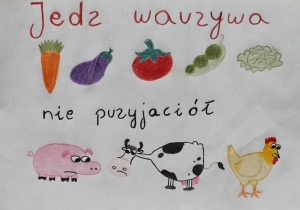 Jedz warzywa
nie przyjaciół